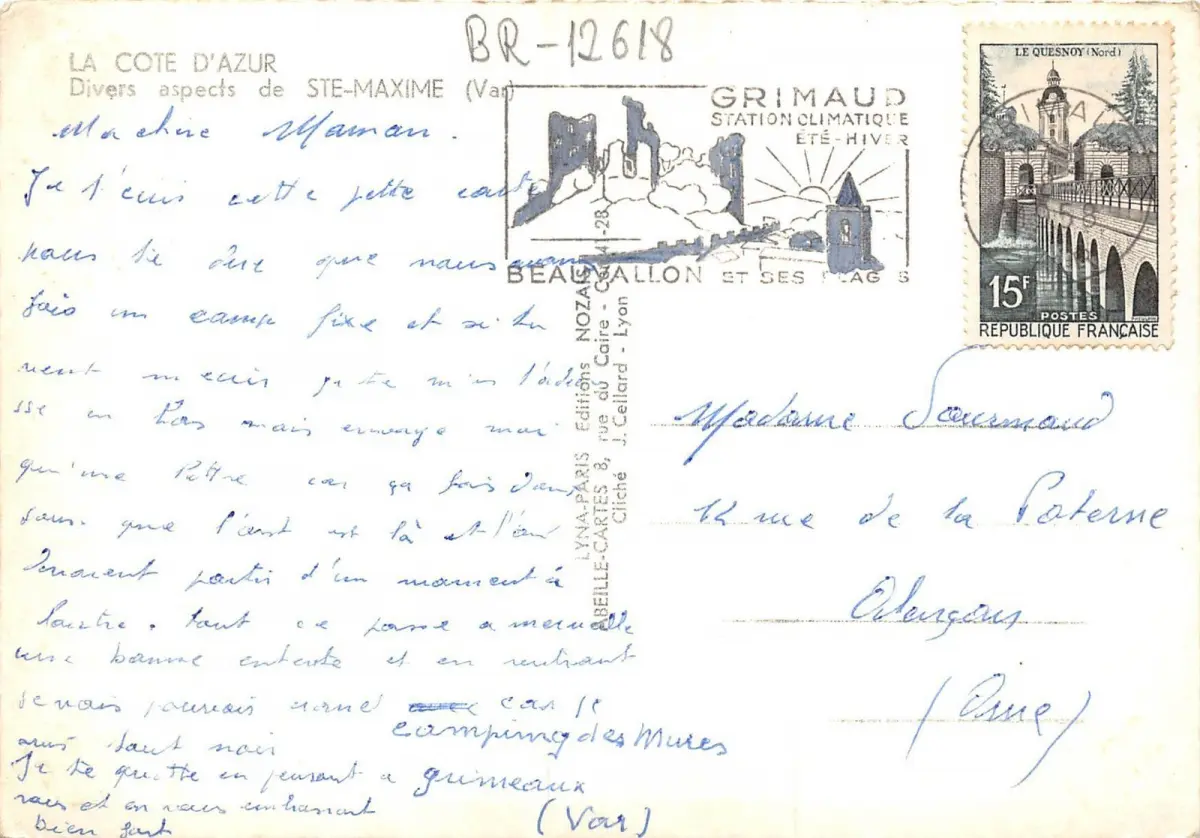 BR-12618
LA COTE D'AZUR
Divers aspects de STE-MAXIME (Var)
GRIMAUD
STATION CLIMATIQUE
ÉTÉ-HIVER
BEAUVALLON ET SES PLAGES
LE QUESNOY (Nord)
15F
POSTES
RÉPUBLIQUE FRANÇAISE
LYNA-PARIS Editions NOZAIS
ABEILLE-CARTES 8, rue du Caire -
Cliché J. Cellard - Lyon
Ma chère Maman.
Je t'écris cette petite carte
pour te dire que nous avons
fais un camp fixe et si tu
veut je te l'adre
sse en mais envoye moi
qu'une lettre car ça fais
que l'un est là et l'au
partir d'un moment à
l'autre. tout ce passe a merveille
une bonne entente et en rentrant
je
tout
Je te quitte en pensant a
vous et en vous embrassant
bien fort
camping des Mures
grimeaux
(Var)
Madame
rue de la Poterne
Alençon
(Orne)